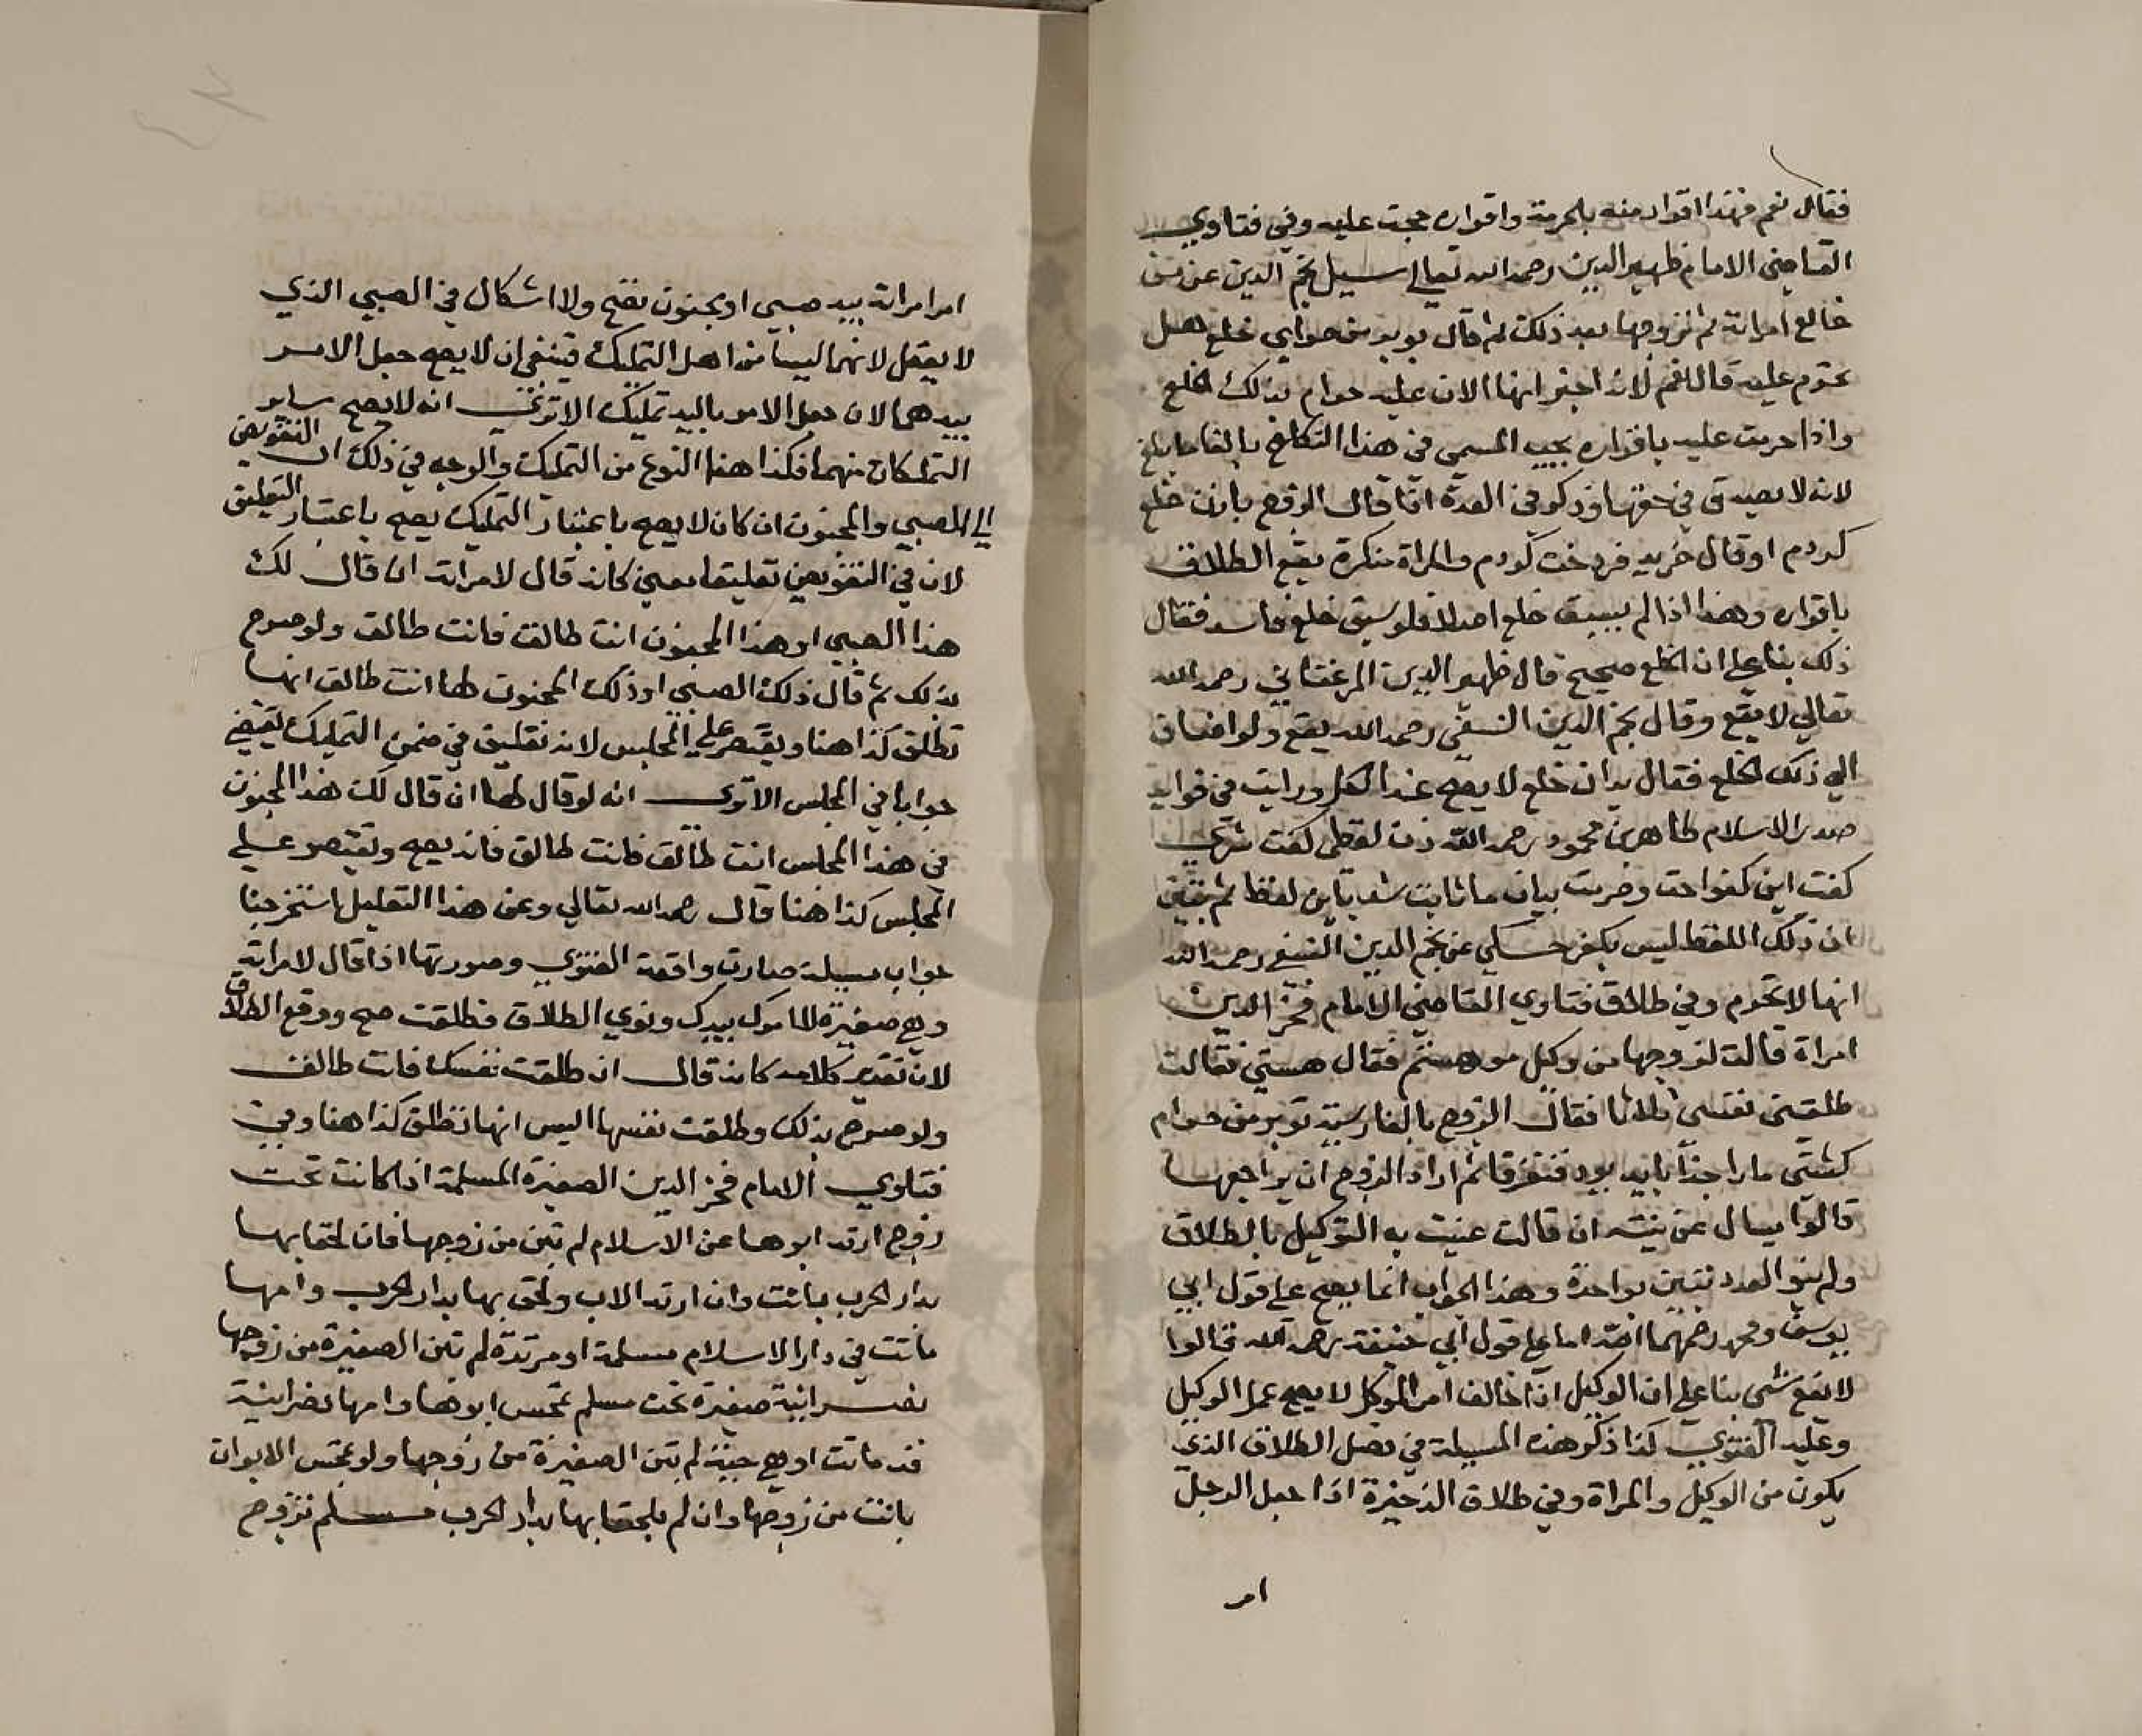 فقال نعم فهذا اقرار منه بالحرمة واقراره حجة عليه وفي فتاوي
القاضي الامام ظهير الدين رحمه الله تعالي سيل نجم الدين عن من
خالع امراته ثم تزوجها بعد ذلك ثم قال بوبر من حرامي خلع هل
تحرم عليه قال نعم لانه اخبر انها الان عليه حرام بذلك الخلع
واذا حرمت عليه باقراره يجب المسمي في هذا النكاح بالغا ما بلغ
لانه لا يصدق في حقها وذكر في العدة اذا قال الزوج با زن خلع
كردم او قال خريد فروخت كردم والمراة منكرة يقع الطلاق
باقراره وهذا اذا لم يسبق خلع اصلا فلو سبق خلع فاسد فقال
ذلك بنا علي ان الخلع صحيح قال ظهير الدين المرغيناني رحمه الله
تعالي لا يقع وقال نجم الدين النسفي رحمه الله يقع ولو اضاف
الي ذلك الخلع فقال بدان خلع لا يصح عند الكل ورايت في فوايد
صدر الاسلام طاهر بن محمود رحمه الله زن لفظي كفت شوي
كفت اين كفر است وحرمت بيان ما ثابت شد باين لفظ ثم تبين
ان ذلك اللفظ ليس بكفر حكي عن نجم الدين النسفي رحمه الله
انها لا تحرم وفي طلاق فتاوي القاضي الامام فخر الدين
امراة قالت لزوجها من وكيل تو هستم فقال هستي فقالت
طلقت نفسي ثلاثا فقال الزوج بالفارسية تو بر من حرام
كشتي مارا جدا بايد بود فتفرقا ثم اراد الزوج ان يراجعها
قالوا يسال عن نيته ان قالت عنيت به التوكيل بالطلاق
ولم ينو العدد تبين بواحدة وهذا الجواب انما يصح علي قول ابي
يوسف ومحمد رحمهما الله اما علي قول ابي حنيفة رحمه الله قالوا
لا يقع شي بنا علي ان الوكيل اذا خالف امر الموكل لا يصح عمل الوكيل
وعليه الفتوي كذا ذكر هذه المسيلة في فصل الطلاق الذي
يكون من الوكيل والمراة وفي طلاق الذخيرة اذا جعل الرجل
امر
امر امراته بيد صبي او مجنون يصح ولا اشكال في الصبي الذي
لا يعقل لانهما ليسا من اهل التمليك فينبغي ان لا يصح جعل الامر
بيدهما لان جعل الامر باليد تمليك الا تري انه لا يصح ساير
التمليكات منهما فكذا هذا النوع من التمليك والوجه في ذلك ان التفويض
الي الصبي والمجنون ان كان لا يصح باعتبار التمليك يصح باعتبار التعليق
لان في التفويض تعليقا معني كانه قال لامراته ان قال لك
هذا الصبي او هذا المجنون انت طالق فانت طالق ولو صرح
بذلك ثم قال ذلك الصبي او ذلك المجنون لها انت طالق انها
تطلق كذا هنا ويقتصر علي المجلس لانه تعليق في ضمن التمليك يقتضي
جوابا في المجلس الا تري انه لو قال لها ان قال لك هذا المجنون
في هذا المجلس انت طالق فانت طالق فانه يصح ويقتصر علي
المجلس كذا هنا قال رحمه الله تعالي وعن هذا التعليل استخرجنا
جواب مسيلة صارت واقعة الفتوي وصورتها اذا قال لامراته
وهي صغيرة امرك بيدك ونوي الطلاق فطلقت صح ووقع الطلاق
لان تقدير كلامه كانه قال ان طلقت نفسك فانت طالق
ولو صرح بذلك وطلقت نفسها اليس انها تطلق كذا هنا وفي
فتاوي الامام فخر الدين الصغيرة المسلمة اذا كانت تحت
زوج ارتد ابوها عن الاسلام لم تبن من زوجها فان لحقا بها
بدار الحرب بانت وان ارتد الاب ولحق بها بدار الحرب وامها
ماتت في دار الاسلام مسلمة او مرتدة لم تبن الصغيرة من زوجها
نصرانية صغيرة تحت مسلم تمجس ابوها وامها نصرانية
قد ماتت او هي حية لم تبن الصغيرة من زوجها ولو تمجس الابوان
بانت من زوجها وان لم يلحقا بها بدار الحرب مسلم تزوج